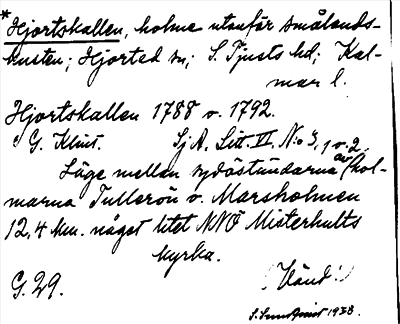 * Hjortskallen, holme utanför Smålands-
kusten; Hjorted sn; S. Tjusts hd; Kal-
mar l.
Hjortskallen 1788 o. 1792.
G. Klint. Sj A. Litt. II. N:o 3, 1 o. 2.
Läge mellan sydöstuddarna av hol-
marna Tullerön o. Marsholmen
12,4 km. något litet NNÖ Misterhults
kyrka.
G. 29. (Vänd!)
S. Sundqvist 1938.